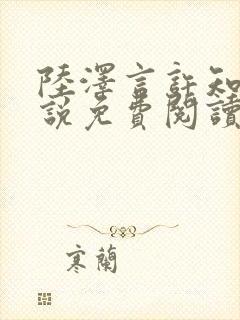 陸澤言許知
說免費閱讀
寒蘭